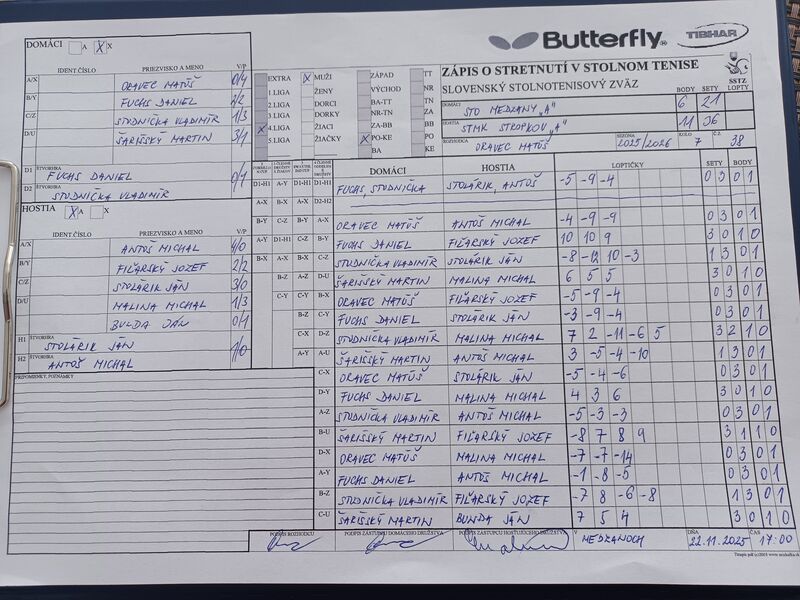 Butterfly TIBHAR
DOMÁCI A X X
IDENT ČÍSLO PRIEZVISKO A MENO V/P
A/X ORAVEC MATÚŠ 0/4
B/Y FUCHS DANIEL 2/2
C/Z STUDNIČKA VLADIMÍR 1/3
D/U ŠARIŠSKÝ MARTIN 3/1
D1 ŠTVORHRA FUCHS DANIEL 0/1
D2 ŠTVORHRA STUDNIČKA VLADIMÍR
HOSTIA X A X
IDENT ČÍSLO PRIEZVISKO A MENO V/P
A/X ANTOŠ MICHAL 4/0
B/Y FIĽARSKÝ JOZEF 2/2
C/Z STOLÁRIK JÁN 3/0
D/U MALINA MICHAL 1/3
BUNDA JÁN 0/1
H1 ŠTVORHRA STOLÁRIK JÁN 1/0
H2 ŠTVORHRA ANTOŠ MICHAL
PRIPOMIENKY, POZNÁMKY
EXTRA X MUŽI ZÁPAD TT
1 LIGA ŽENY VÝCHOD NR
2 LIGA DORCI BA-TT TN
3 LIGA DORKY NR-TN ZA
X 4 LIGA ŽIACI ZA-BB BB
5 LIGA ŽIAČKY X PO-KE PO
BA KE
ZÁPIS O STRETNUTÍ V STOLNOM TENISE
SLOVENSKÝ STOLNOTENISOVÝ ZVÄZ
SSTZ
BODY SETY LOPTY
DOMÁCI STO MEDZANY „A" 6 21
HOSTIA STMK STROPKOV „A" 11 36
ROZHODCA ORAVEC MATÚŠ SEZÓNA 2025/2026 KOLO 7 Č.Z. 38
DOMÁCI HOSTIA LOPTIČKY SETY BODY
D1-H1 A-Y D1-H1 D1-H1 FUCHS, STUDNIČKA STOLÁRIK, ANTOŠ -5 -9 -4 0 3 0 1
A-X B-X A-X D2-H2
B-Y C-Z B-Y A-X ORAVEC MATÚŠ ANTOŠ MICHAL -4 -9 -9 0 3 0 1
A-Y D1-H1 C-Z B-Y FUCHS DANIEL FIĽARSKÝ JOZEF 10 10 9 3 0 1 0
B-X A-X B-X C-Z STUDNIČKA VLADIMÍR STOLÁRIK JÁN -8 -12 10 -3 1 3 0 1
B-Z A-Z D-U ŠARIŠSKÝ MARTIN MALINA MICHAL 6 5 5 3 0 1 0
C-Y C-Y B-X ORAVEC MATÚŠ FIĽARSKÝ JOZEF -5 -9 -4 0 3 0 1
B-Z C-Y FUCHS DANIEL STOLÁRIK JÁN -3 -9 -4 0 3 0 1
C-X D-Z STUDNIČKA VLADIMÍR MALINA MICHAL 7 2 -11 -6 5 3 2 1 0
A-Y A-U ŠARIŠSKÝ MARTIN ANTOŠ MICHAL 3 -5 -4 -10 1 3 0 1
C-X ORAVEC MATÚŠ STOLÁRIK JÁN -5 -4 -6 0 3 0 1
D-Y FUCHS DANIEL MALINA MICHAL 4 3 6 3 0 1 0
A-Z STUDNIČKA VLADIMÍR ANTOŠ MICHAL -5 -3 -3 0 3 0 1
B-U ŠARIŠSKÝ MARTIN FIĽARSKÝ JOZEF -8 7 8 9 3 1 1 0
D-X ORAVEC MATÚŠ MALINA MICHAL -7 -7 -14 0 3 0 1
A-Y FUCHS DANIEL ANTOŠ MICHAL -1 -8 -5 0 3 0 1
B-Z STUDNIČKA VLADIMÍR FIĽARSKÝ JOZEF -7 8 -6 -8 1 3 0 1
C-U ŠARIŠSKÝ MARTIN BUNDA JÁN 7 5 4 3 0 1 0
PODPIS ROZHODCU PODPIS ZÁSTUPCU DOMÁCEHO DRUŽSTVA PODPIS ZÁSTUPCU HOSŤUJÚCEHO DRUŽSTVA V MEDZANOCH DŇA 22.11.2025 ČAS 17:00